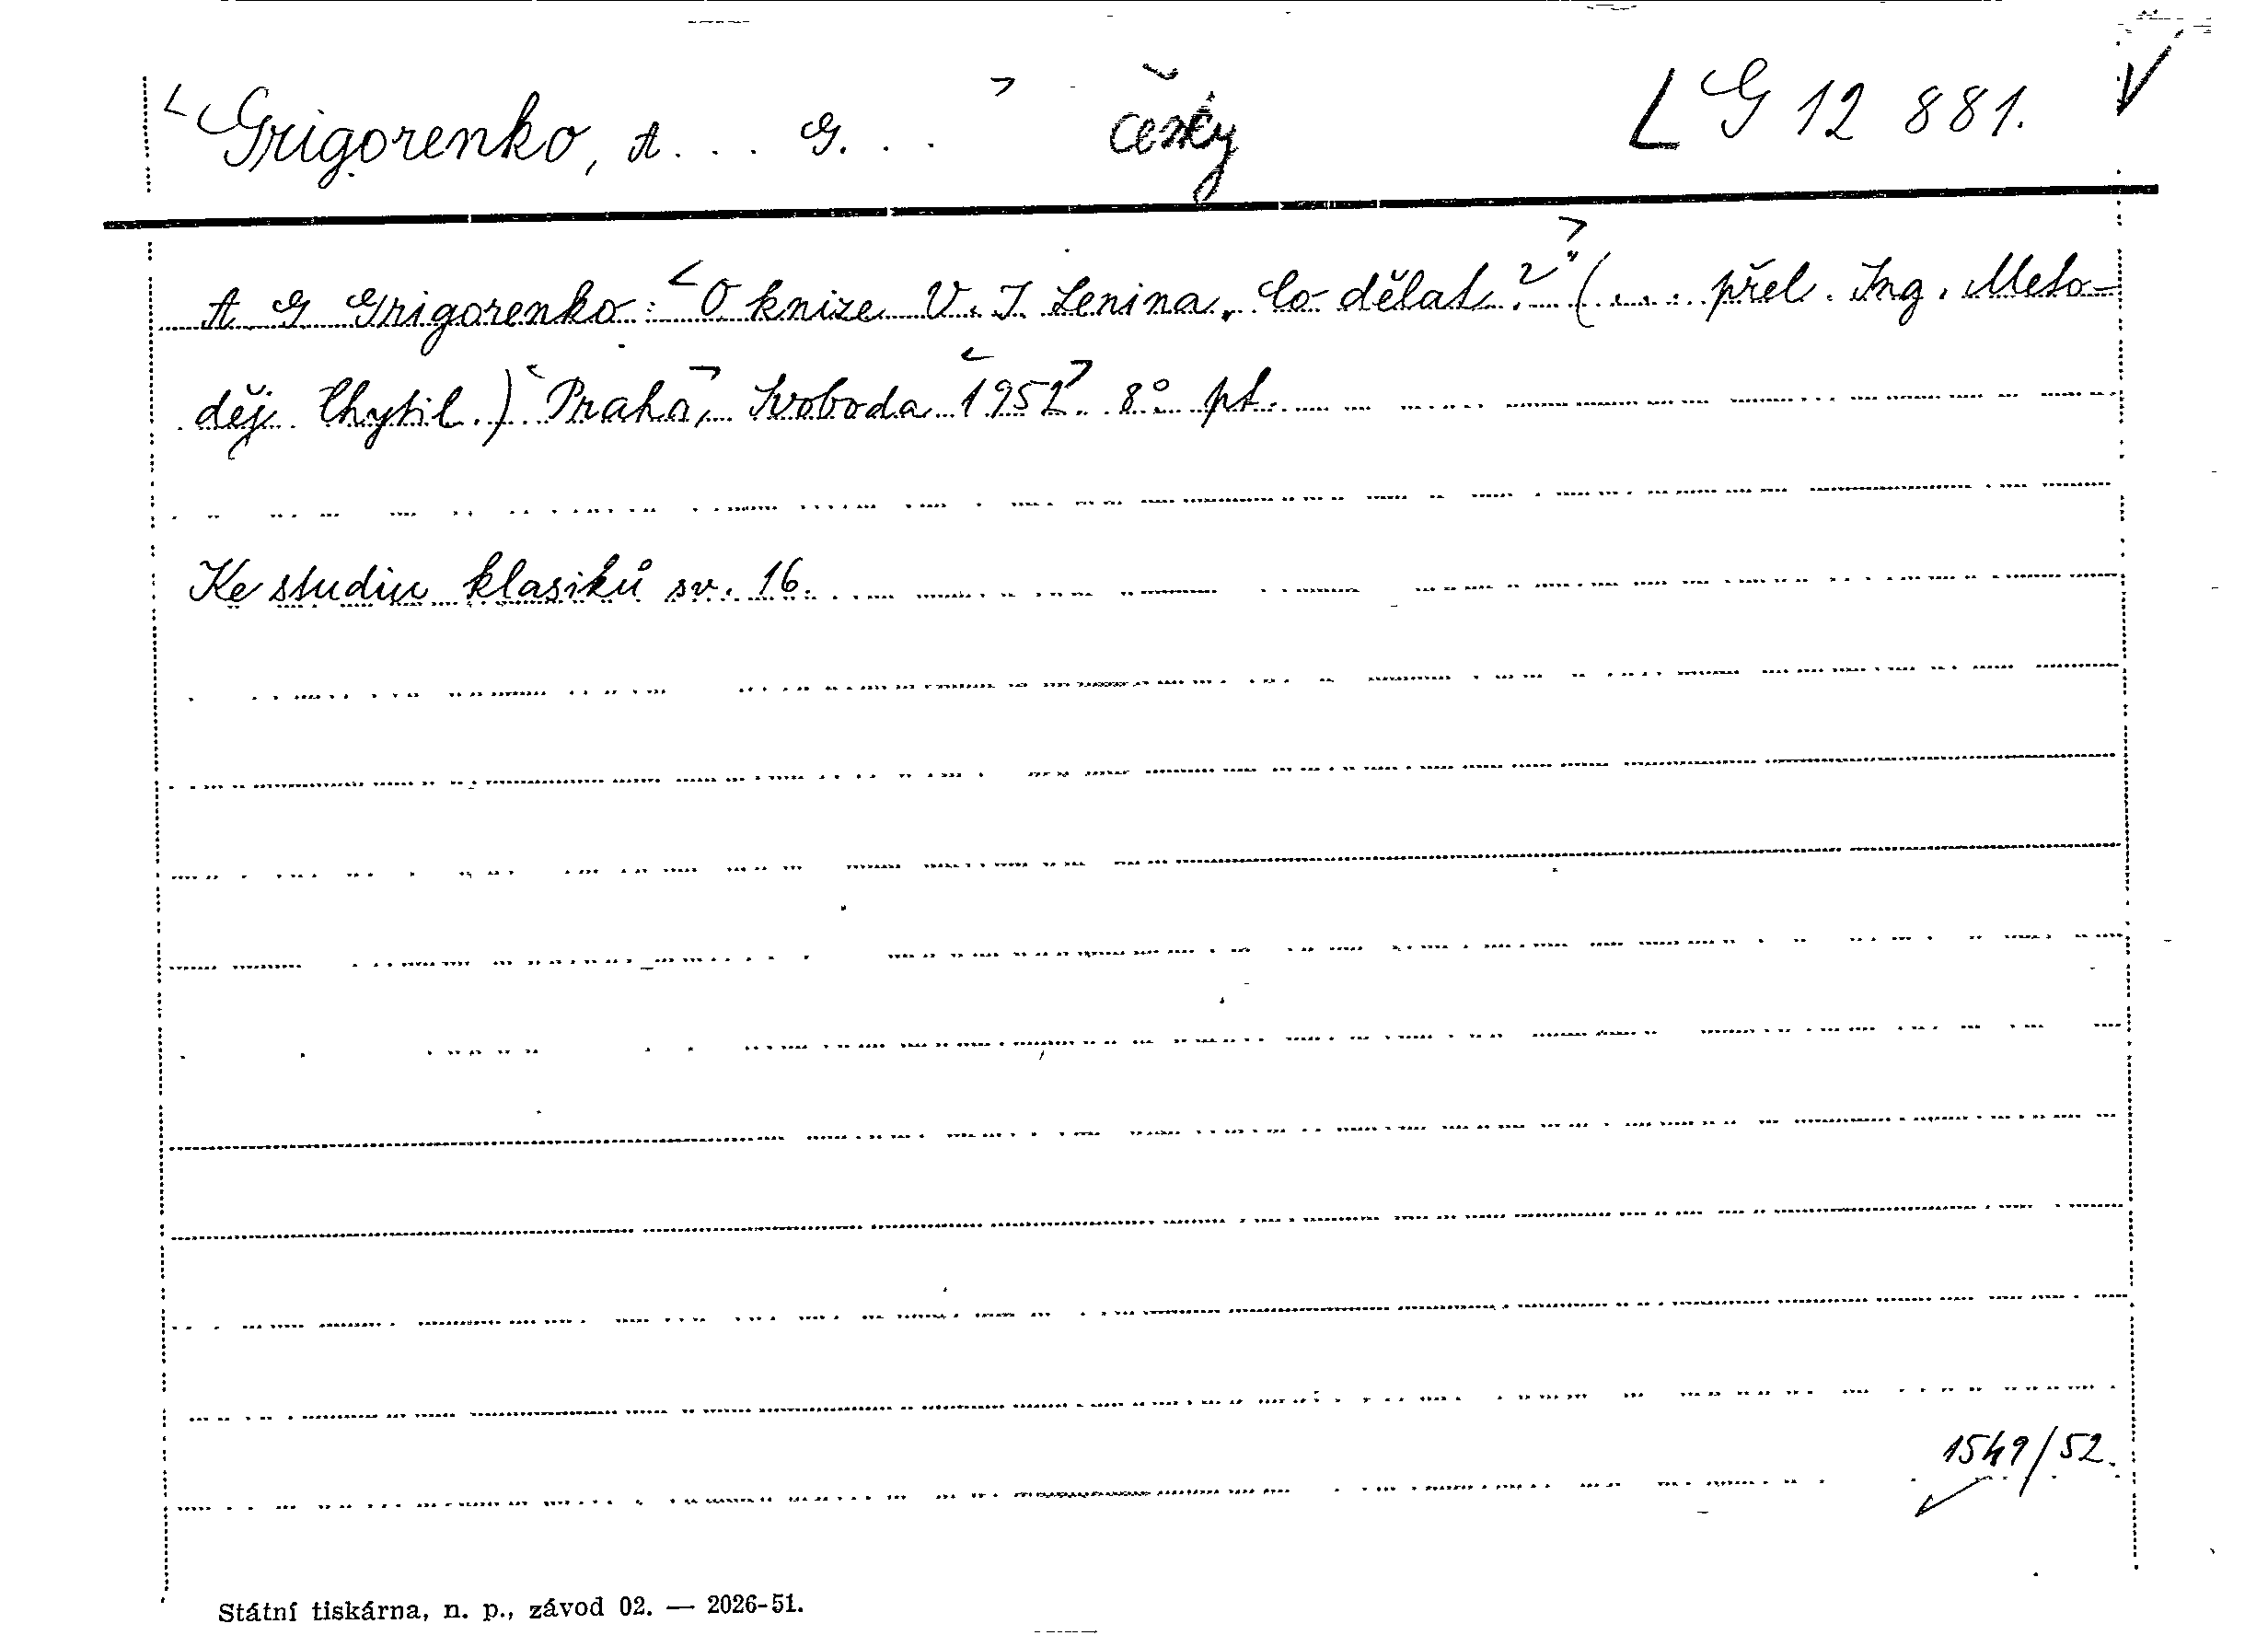 <Grigorenko, A... G...> česky L G 12 881. V
A G Grigorenko: <O knize V. I. Lenina „Co dělat?"> (... přel. Ing. Meto-
děj Chytil.) <Praha>, Svoboda <1952>. 8° pt.
Ke studiu klasiků sv. 16.
1549/52.
Státní tiskárna, n. p., závod 02. — 2026-51.